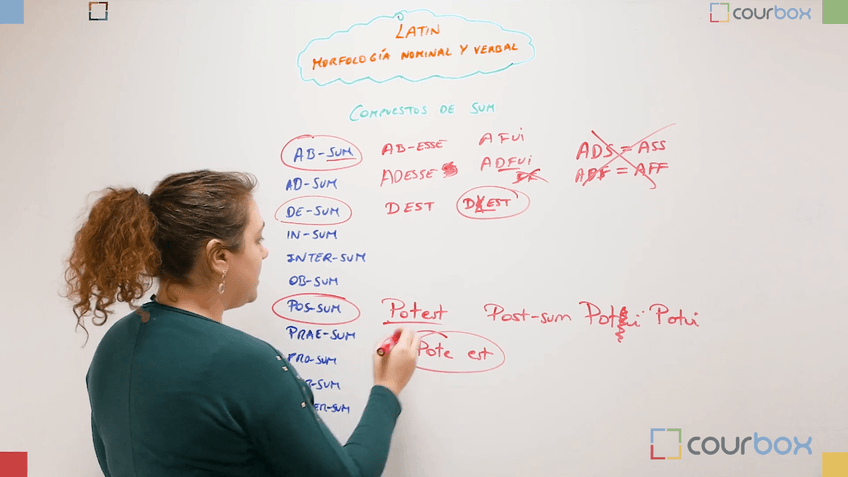 courbox
LATIN
MORFOLOGÍA NOMINAL Y VERBAL
COMPUESTOS DE SUM
AB-SUM AB-ESSE AFUI ADS = ASS
AD-SUM ADESSE ADFUI ADF = AFF
DE-SUM DEST
IN-SUM
INTER-SUM
OB-SUM
POS-SUM Potest Post-sum Potui
PRAE-SUM
PRO-SUM Pote est
courbox